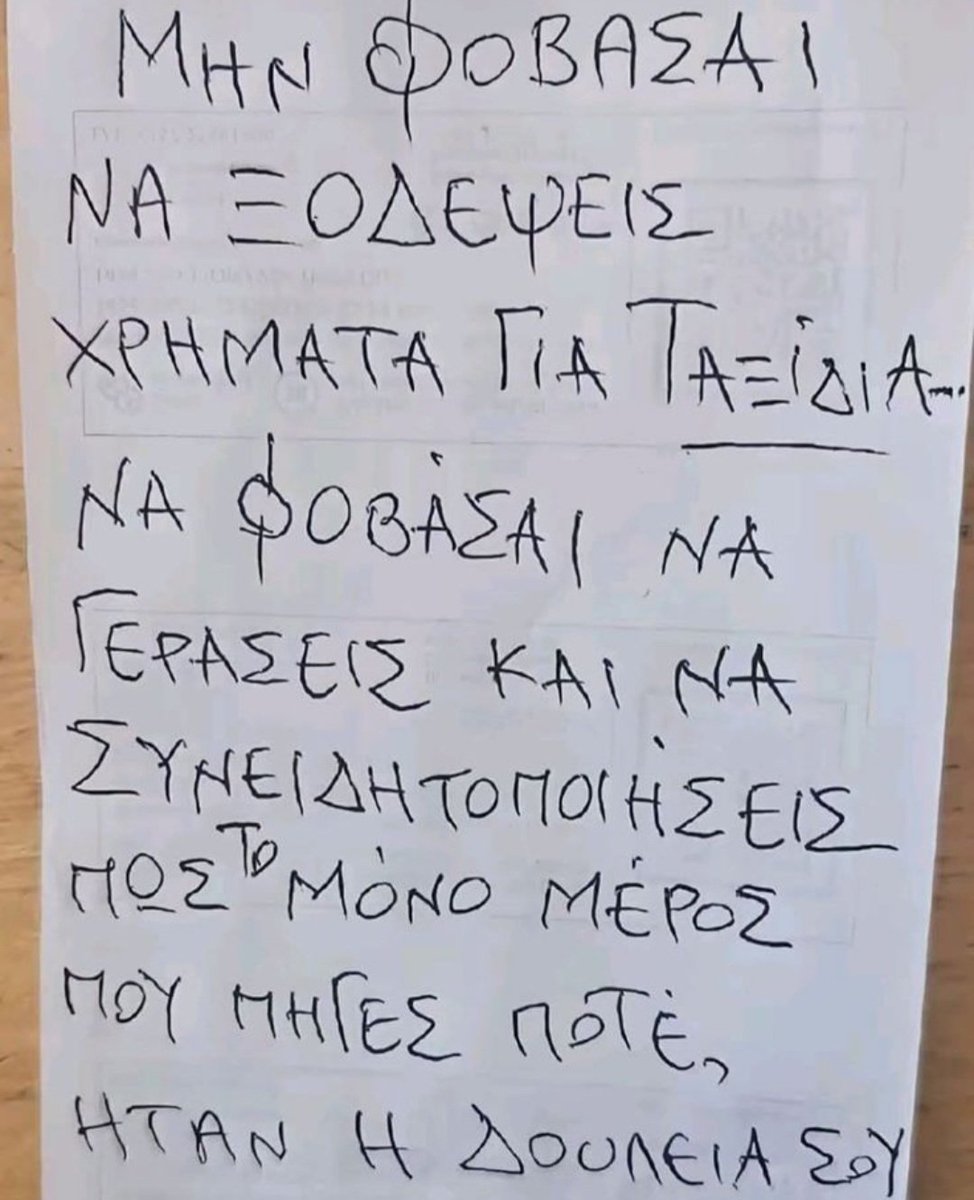 ΜΗΝ ΦΟΒΑΣΑΙ
ΝΑ ΞΟΔΕΨΕΙΣ
ΧΡΗΜΑΤΑ ΓΙΑ ΤΑΞΊΔΙΑ...
ΝΑ ΦΟΒΆΣΑΙ ΝΑ
ΓΕΡΑΣΕΙΣ ΚΑΙ ΝΑ
ΣΥΝΕΙΔΗΤΟΠΟΙΉΣΕΙΣ
ΠΩΣ ΤΟ ΜΌΝΟ ΜΈΡΟΣ
ΠΟΥ ΠΗΓΕΣ ΠΟΤΈ,
ΗΤΑΝ Η ΔΟΥΛΕΙΑ ΣΟΥ